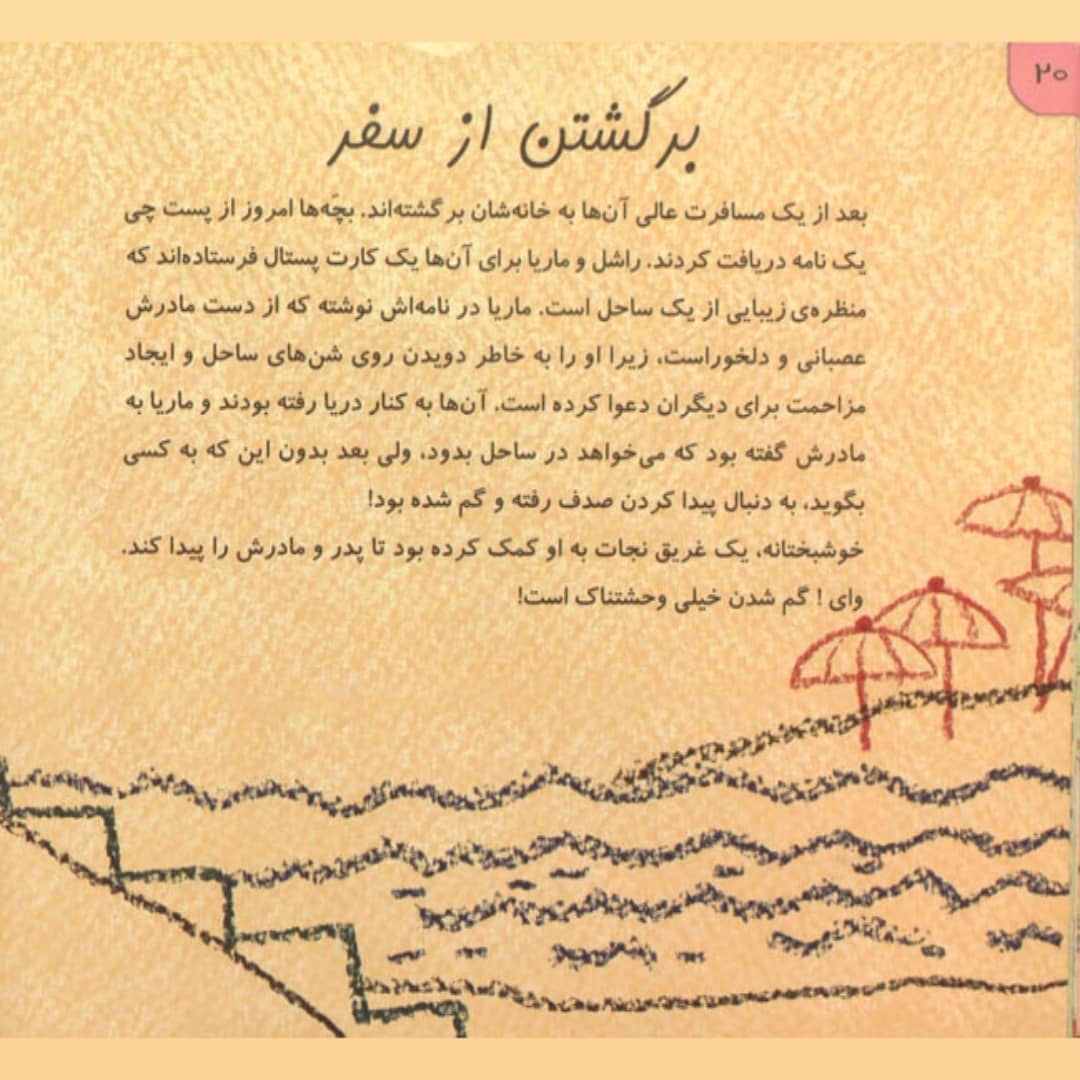 ۲۰
برگشتن از سفر
بعد از یک مسافرت عالی آن‌ها به خانه‌شان برگشته‌اند. بچّه‌ها امروز از پست چی
یک نامه دریافت کردند. راشل و ماریا برای آن‌ها یک کارت پستال فرستاده‌اند که
منظره‌ی زیبایی از یک ساحل است. ماریا در نامه‌اش نوشته که از دست مادرش
عصبانی و دلخوراست، زیرا او را به خاطر دویدن روی شن‌های ساحل و ایجاد
مزاحمت برای دیگران دعوا کرده است. آن‌ها به کنار دریا رفته بودند و ماریا به
مادرش گفته بود که می‌خواهد در ساحل بدود، ولی بعد بدون این که به کسی
بگوید، به دنبال پیدا کردن صدف رفته و گم شده بود!
خوشبختانه، یک غریق نجات به او کمک کرده بود تا پدر و مادرش را پیدا کند.
وای ! گم شدن خیلی وحشتناک است!